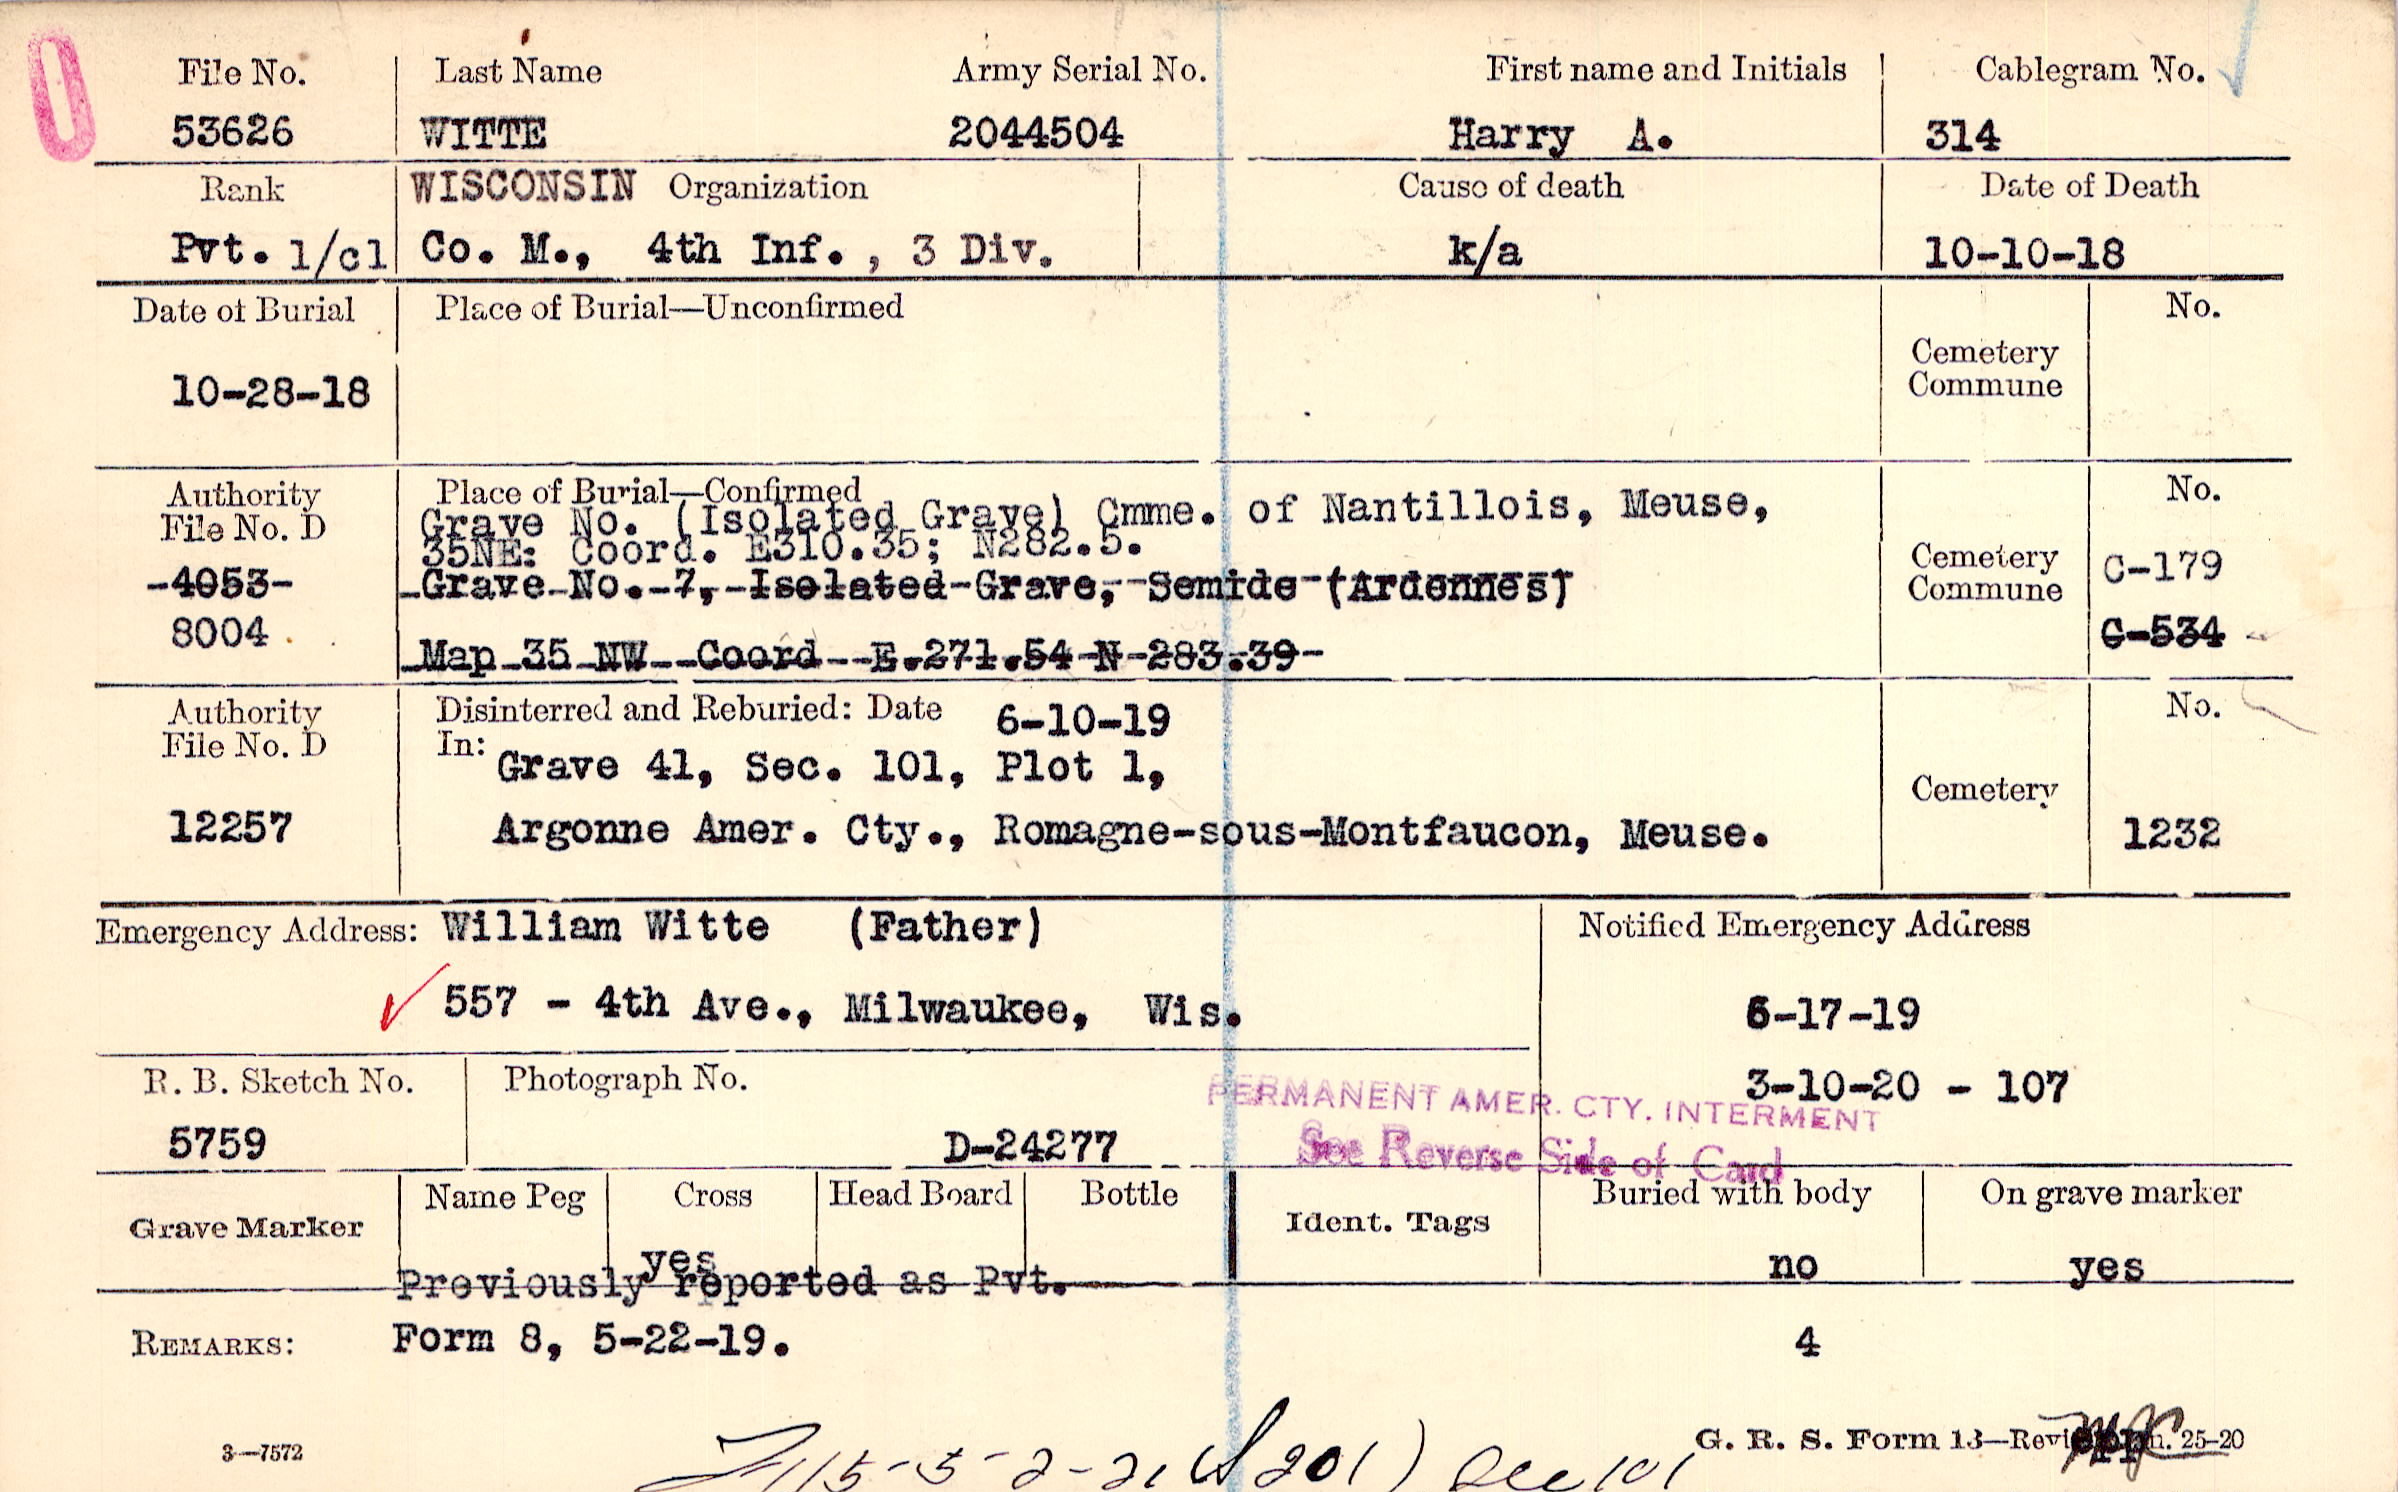 File No. Last Name Army Serial No. First name and Initials Cablegram No.
53626 WITTE 2044504 Harry A. 314
Rank WISCONSIN Organization Cause of death Date of Death
Pvt. 1/cl Co. M., 4th Inf., 3 Div. k/a 10-10-18
Date of Burial Place of Burial—Unconfirmed No.
Cemetery
Commune
10-28-18
Authority Place of Burial—Confirmed No.
File No. D Grave No. (Isolated Grave) Cmme. of Nantillois, Meuse,
35NE: Coord. E310.35; N282.5.
-4053- Grave No. 7, Isolated Grave, Semide (Ardennes) Cemetery Commune C-179
8004 Map 35 NW Coord E.271.54 N 283.39 C-534
Authority Disinterred and Reburied: Date 6-10-19 No.
File No. D In: Grave 41, Sec. 101, Plot 1,
Cemetery
12257 Argonne Amer. Cty., Romagne-sous-Montfaucon, Meuse. 1232
Emergency Address: William Witte (Father) Notified Emergency Address
557 - 4th Ave., Milwaukee, Wis. 6-17-19
R. B. Sketch No. Photograph No. 3-10-20 - 107
PERMANENT AMER. CTY. INTERMENT
5759 D-24277 See Reverse Side of Card
Grave Marker Name Peg Cross Head Board Bottle Ident. Tags Buried with body On grave marker
yes no yes
Previously reported as Pvt.
REMARKS: Form 8, 5-22-19. 4
3—7572 G. R. S. Form 13— 25-20
115-5-2-21 (S201) Sec 101